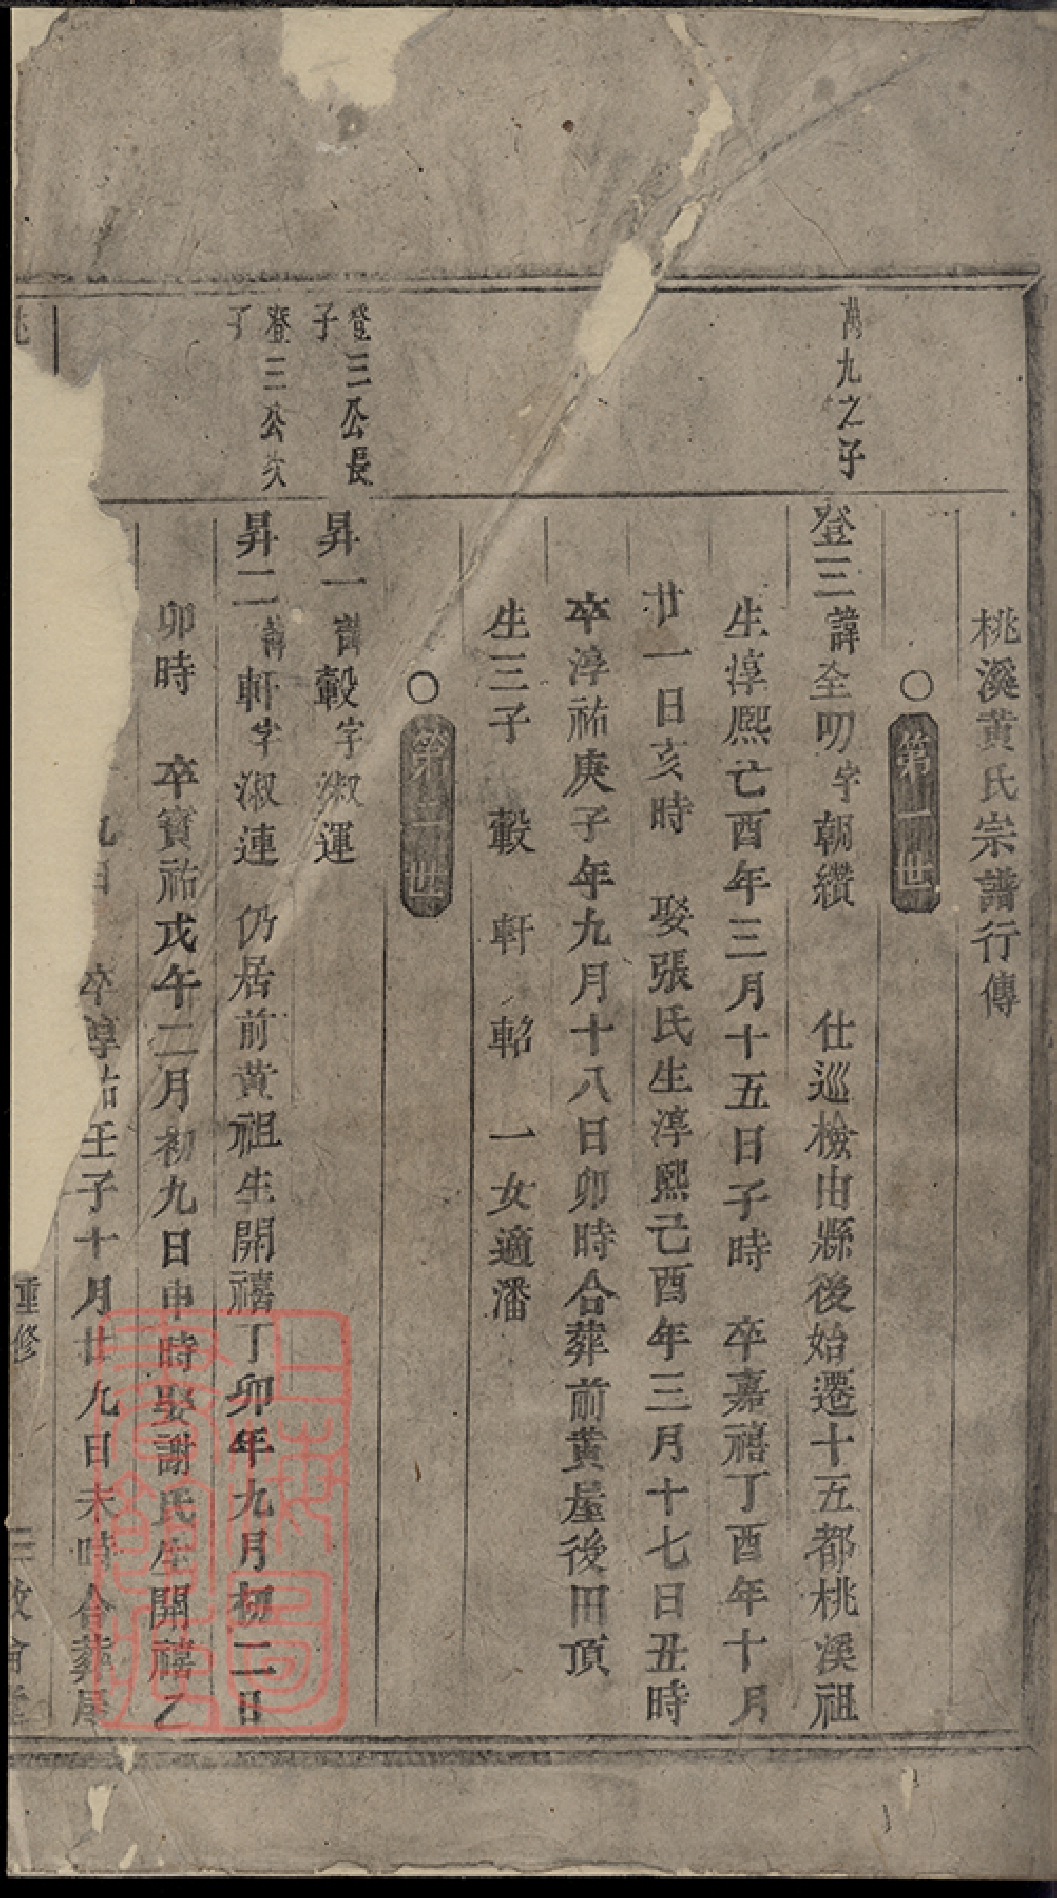 桃溪黃氏宗譜行傳
○第一世
萬九之子
登三諱全叨字朝纘 仕巡檢由縣後始遷十五都桃溪祖
生淳熙已酉年三月十五日子時 卒嘉禧丁酉年十月
廿一日亥時 娶張氏生淳熙己酉年三月十七日丑時
卒淳祐庚子年九月十八日卯時合葬前黃屋後田頂
生三子 轂 軒 軺 一女適潘
○第二世
登三公長子
昇一諱轂字淑運
登三公次子
昇二諱軒字淑連 仍居前黃祖生開禧丁卯年九月初二日
卯時 卒寶祐戊午二月初九日申時娶謝氏生開禧乙
九日 卒淳祐壬子十月廿九日未時合葬屋
重修 三教會堂
上海圖書館藏